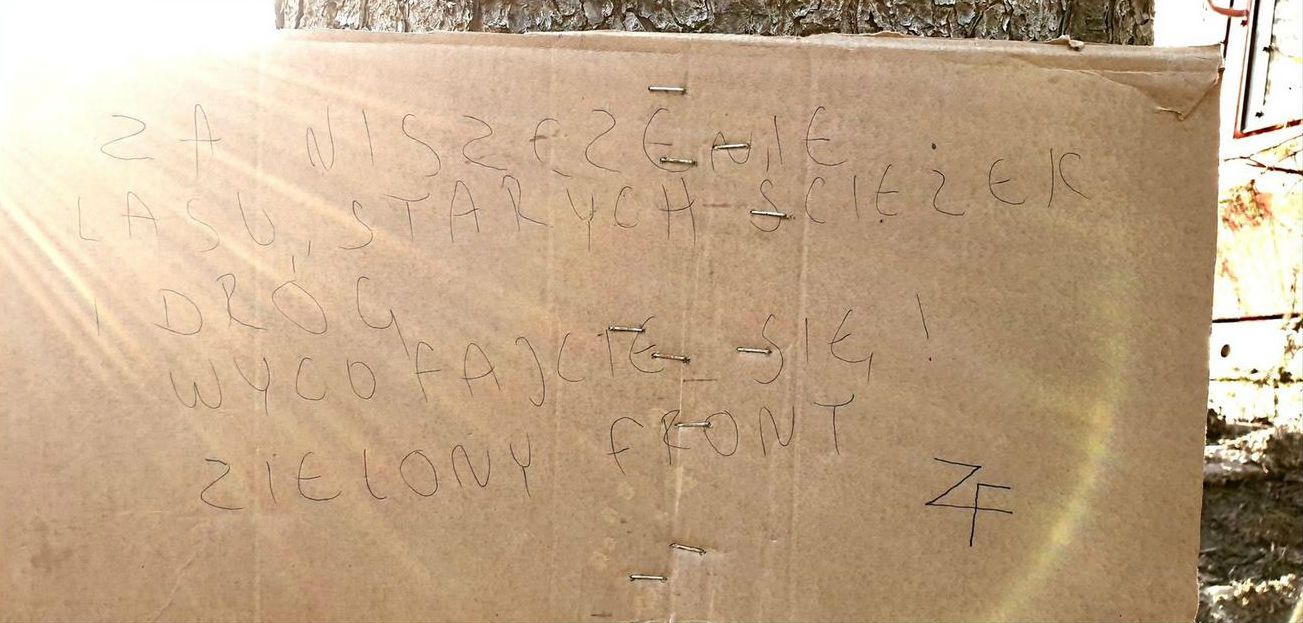 ZA NISZCZENIE
LASU, STARYCH ŚCIEŻEK
I DRÓG
WYCOFAJCIE SIĘ!
ZIELONY FRONT
ZF